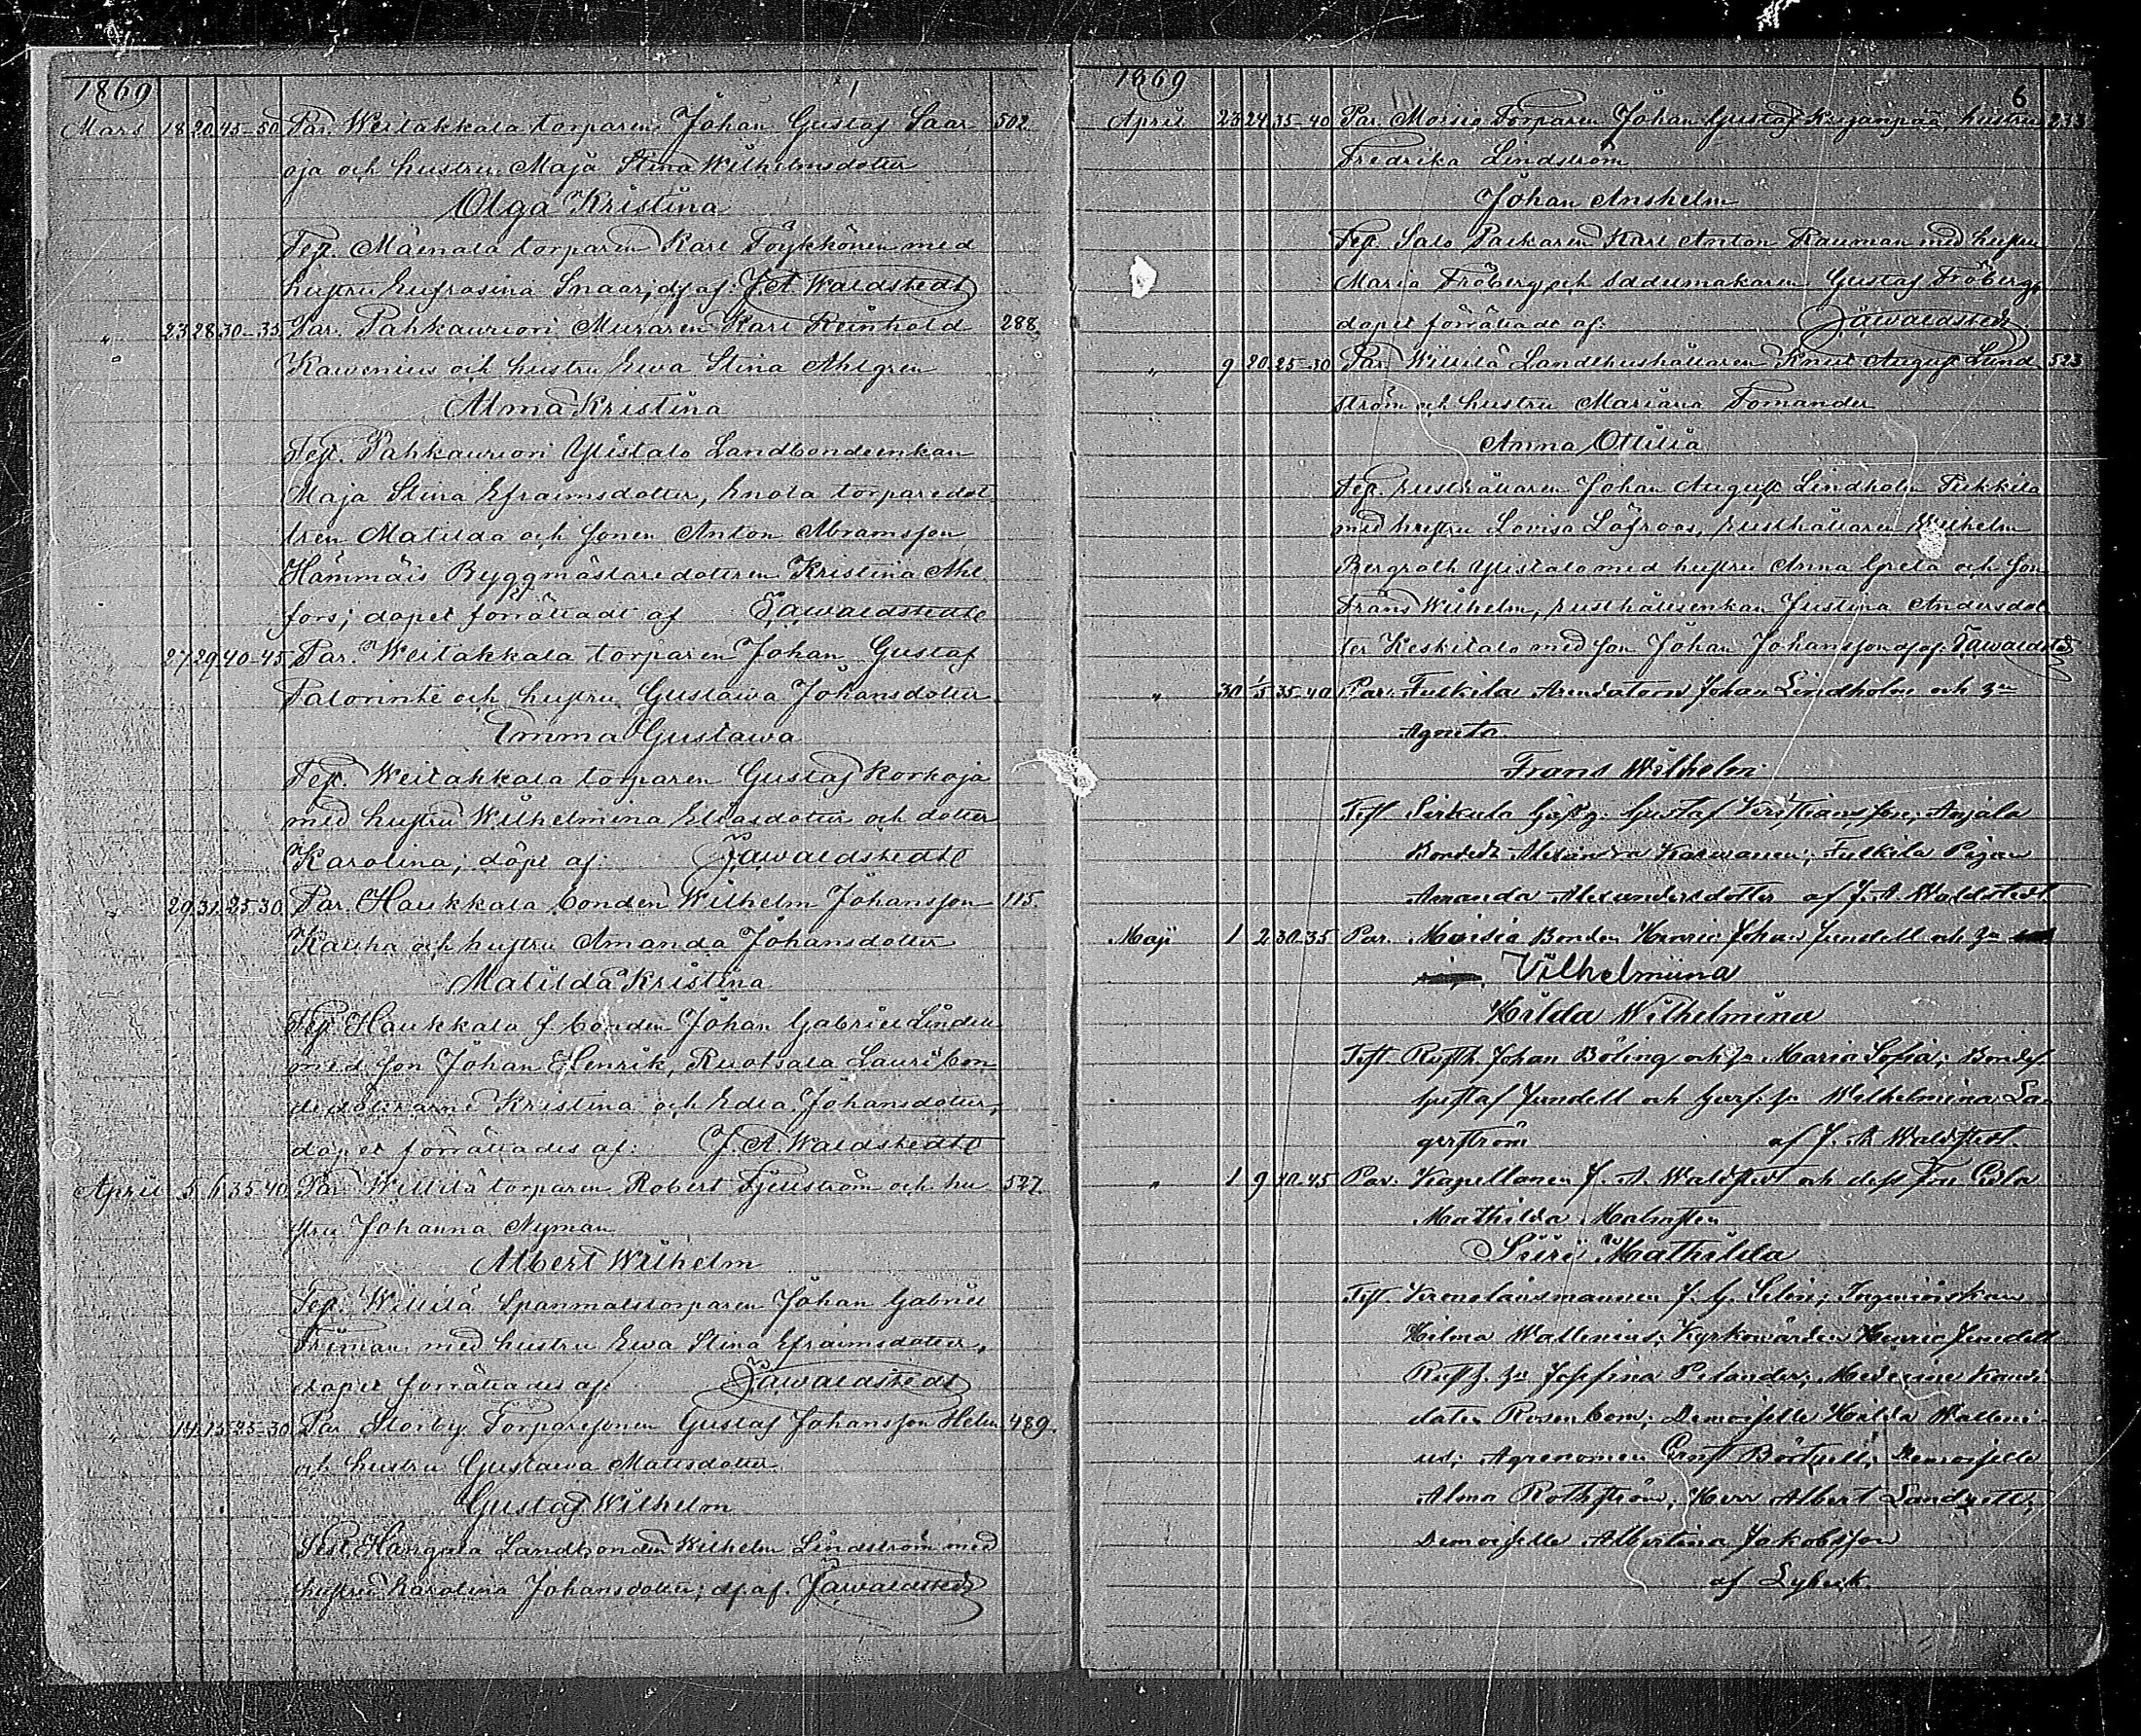 1869
Mars 18 20 45-50 Par. Weitakkala torparen Johan Gustaf Saar 502
oja och hustru Maja Stina Wilhelmsdotter
Olga Kristina
Test. Mäenala torparen Karl Töykkönen med
hustru Eufrosina Snaar; df af: J.A. Waldstedt
" 23 28 30-35 Par. Pahkavuori Muraren Karl Reinhold 288
Kawenius och hustru Ewa Stina Ahlgren
Alma Kristina
Test. Pahkavuori Ylistalo Landbondeenkan
Maja Stina Efraimsdotter, Enola torparedot
tren Matilda och sonen Anton Abramsson
Hämmäis Byggmästaredottren Kristina Ahl
fors; dopet förrättadt af JAWaldstedt
27 29 40-45 Par. Weitakkala torparen Johan Gustaf
Palorinne och hustru Gustawa Johansdotter
Emma Gustawa
Test. Weitakkala torparen Gustaf Korkoja
med hustru Wilhelmina Eliasdotter och dotter
Karolina; döpt af: JAWaldstedt
" 29 31 25-30 Par. Haukkala bonden Wilhelm Johansson 115.
Kauha och hustru Amanda Johansdotter
Matilda Kristina
Test. Haukkala f. bonden Johan Gabriel Lindell
med son Johan Henrik, Ruotsala Lauri bon-
dedöttrarne Kristina och Edla Johansdotter,
dopet förrättades af: J.A. Waldstedt
April 5 6 35-40 Par. Willilä torparen Robert Fjellström och hu 527
stru Johanna Nyman
Albert Wilhelm
Test. Willilä Spanmålstorparen Johan Gabriel
Friman med hustru Ewa Stina Efraimsdotter,
dopet förrättades af: JAWaldstedt
" 14 15 25-30 Par Storby Torparesonen Gustaf Johansson Helin 489.
och hustru Gustawa Matisdotter
Gustaf Wilhelm
Test. Hangala Landbonden Wilhelm Lindström med
hustru Karolina Johansdotter; df. af. JAWaldstedt
1869
6
April 23 24 35-40 Par. Moisio Torparen Johan Gustaf Kujanpää, hustru 233
Fredrika Lindström
Johan Anshelm
Test. Salo Packaren Karl Anton Rauman med hustru
Maria Fröberg och Sadelmakaren Gustaf Fröberg,
dopet förrättadt af: JAWaldstedt
" 9 20 25-30 Par. Willilä Landthushållaren Knut August Lind 523
ström och hustru Mariana Fomander
Anna Ottilia
Test. rusthållaren Johan August Lindholm Tukkila
med hustru Lovisa Löfroos, rusthållaren Wilhelm
Bergroth Ylistalo med hustru Anna Greta och son
Frans Wilhelm, rusthållsenkan Justina Andersdot
ter Keskitalo med son Johan Johansson df af. JAWaldstedt
" 30 1/5 35-40 Par. Tukkila Arendatorn Johan Lindholm och hu
Agneta
Frans Wilhelm
Test Sirkula Gustaf Kristiansson; Anjala
Bonded. Alexandra Karwonen; Tukkila Pigan
Amanda Alexandersdotter af J. A. Waldstedt.
Maji 1 2 30-35 Par. Moisio Bonden Henric Johan Jundell och hu
Vilhelmiina
Hilda Wilhelmina
Test. Rusth. Johan Böling och hu Maria Sofia; Bondes.
Gustaf Jundell och hu Wilhelmina La-
gerström af J. A. Waldstedt.
" 1 9 40-45 Par. Kapellanen J. A. Waldstedt och dess Fru Edla
Mathilda Malmstén
Siiri Mathilda
Test. Kronolänsmannen J. G. Selin; Ingeniörskan
Hilma Wallenius; Kyrkowärden Henric Jundell
Rusth. hu Josefina Pelander; Medicine Kandi-
daten Rosenbom; Demoiselle Hilda Walleni-
us; Agronomen Ernst Börtzell; Demoiselle
Alma Rothström; Herr Albert Landzett;
Demoiselle Albertina Jakobsson
af Lybeck.